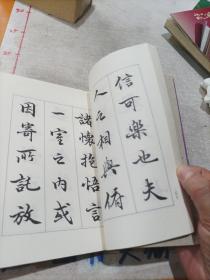 信可樂也夫
人之相與俯
諸懷抱悟言
一室之內或
因寄所託放